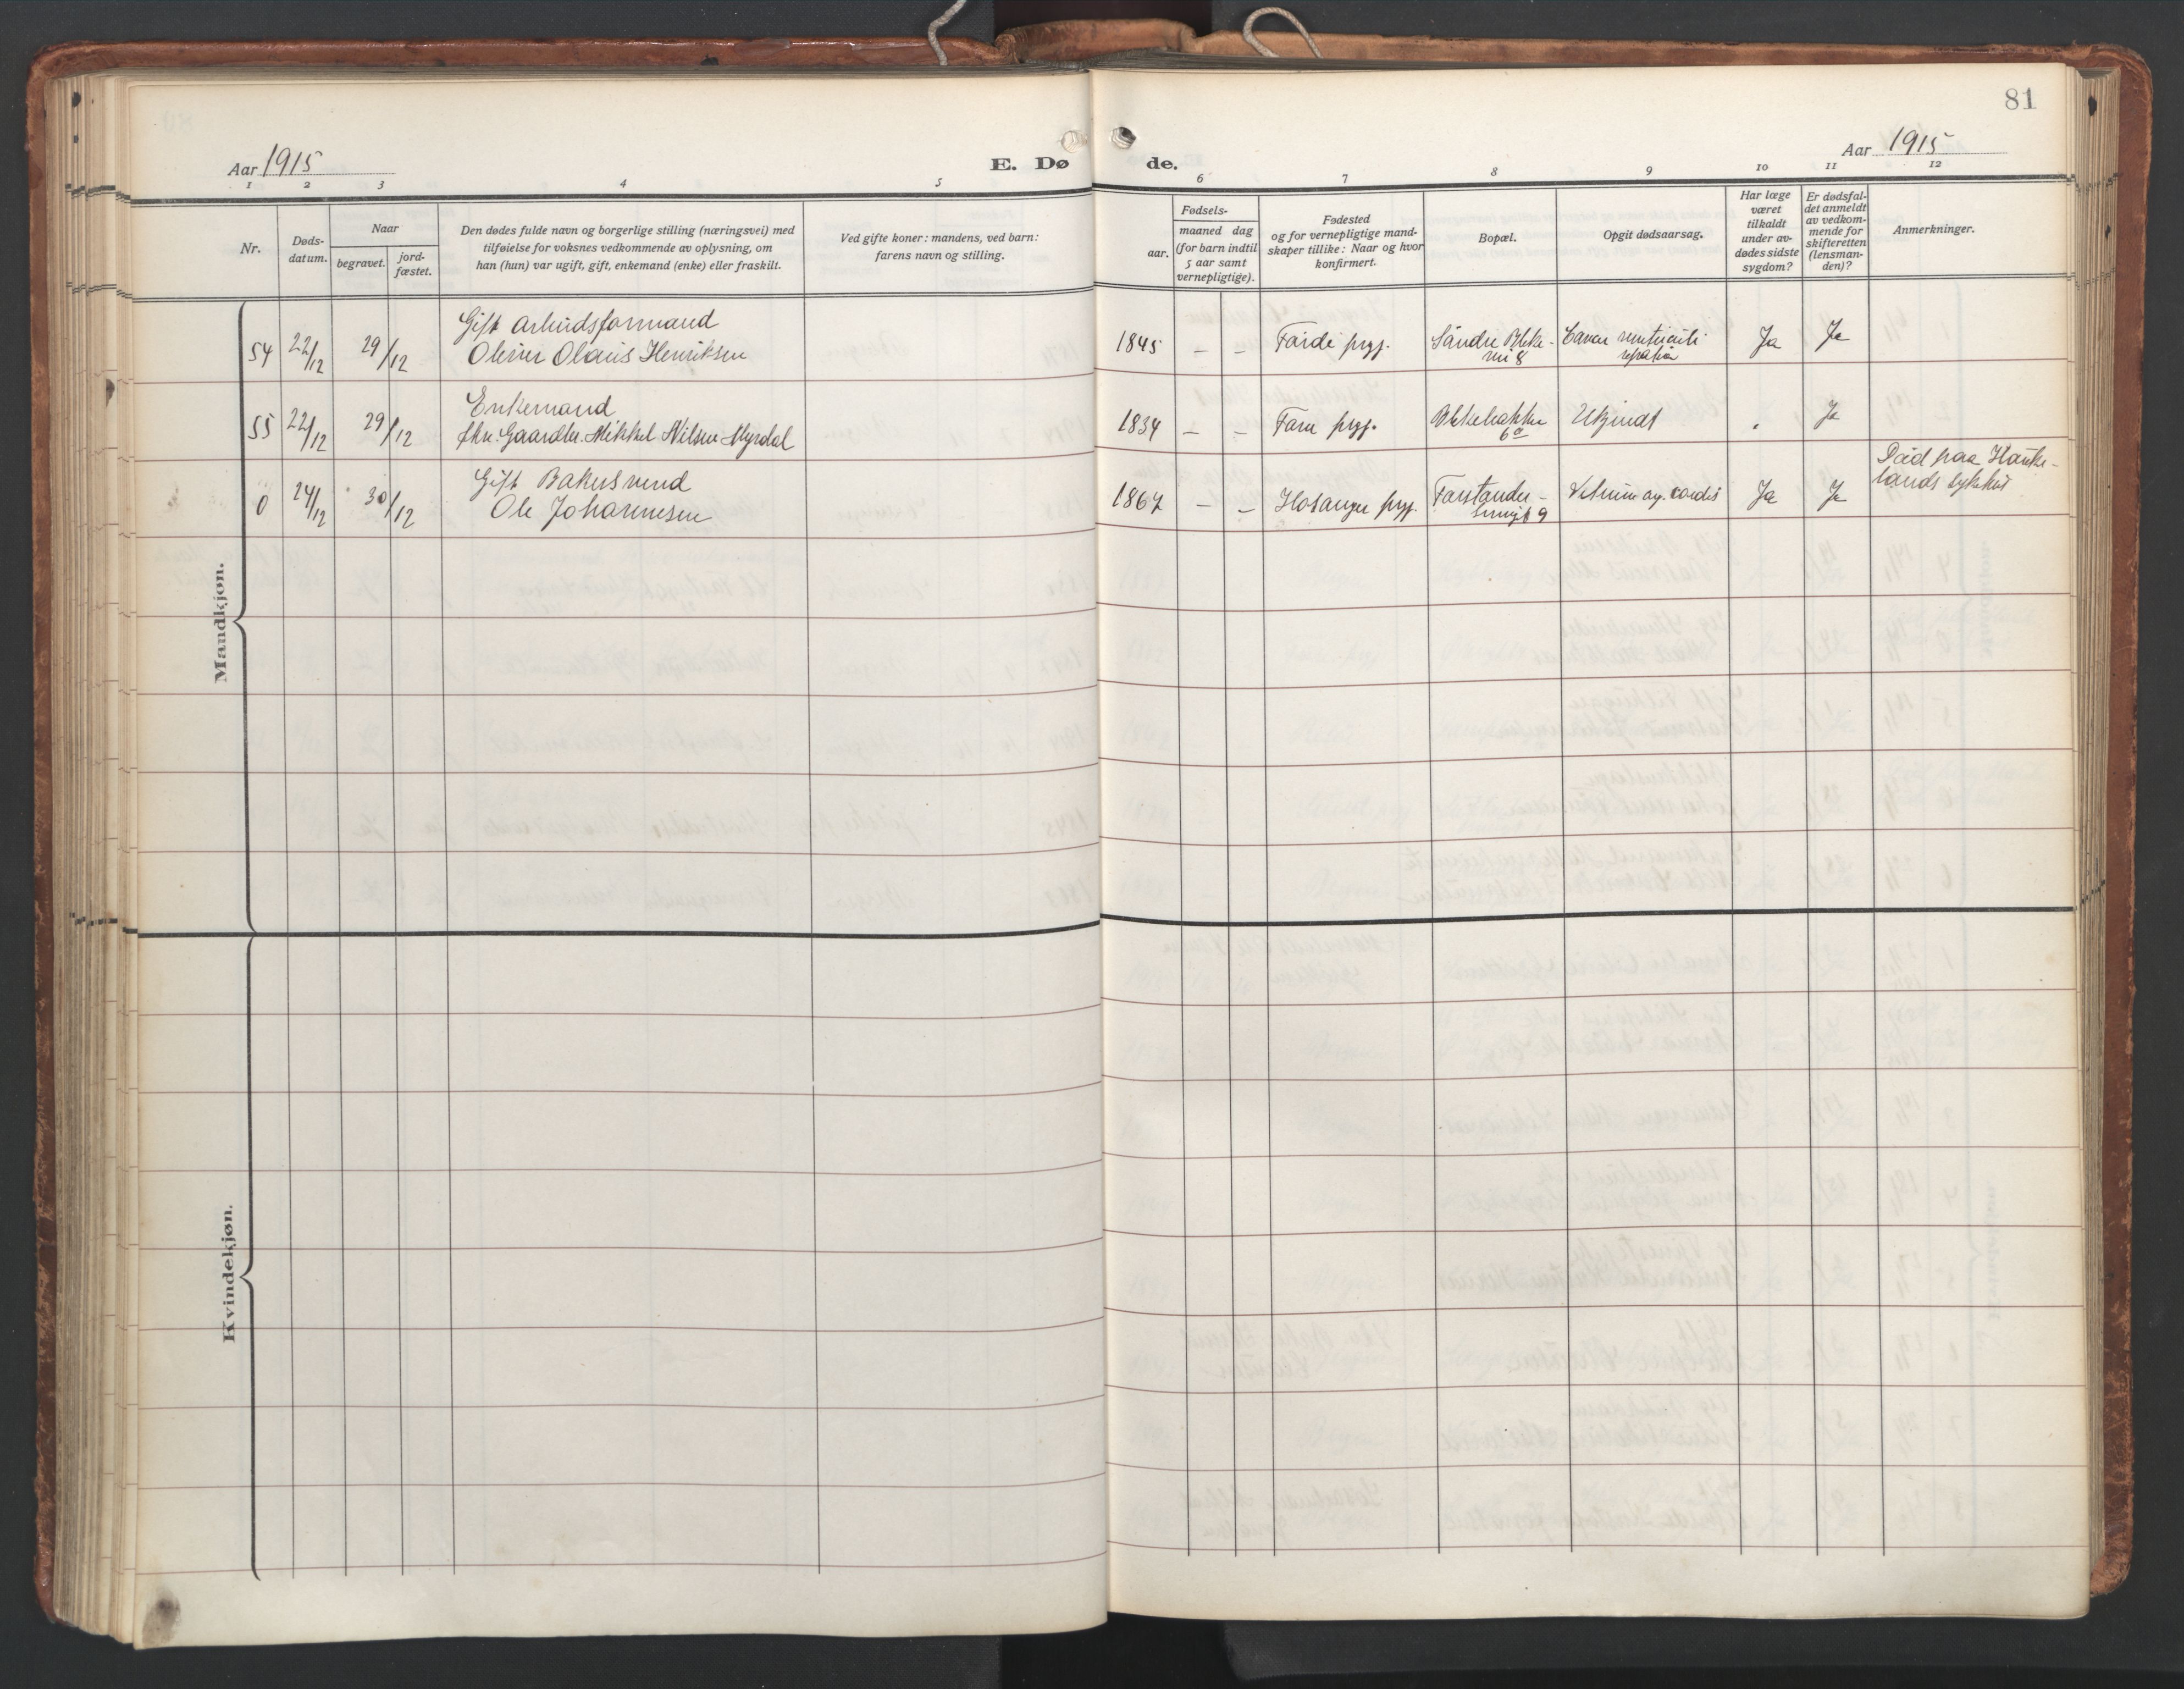 81
Aar 1915
E. Dø
de.
Aar 1915
1 2 3 4 5 6 7 8 9 10 11 12
Nr.
Døds-
datum.
Naar
begravet.
jord-
fæstet.
Den dødes fulde navn og borgerlige stilling (næringsvei) med
tilføielse for voksnes vedkommende av oplysning, om
han (hun) var ugift, gift, enkemand (enke) eller fraskilt.
Ved gifte koner: mandens, ved barn:
farens navn og stilling.
Fødsels-
aar.
maaned dag
(for barn indtil
5 aar samt
vernepligtige).
Fødested
og for vernepligtige mand-
skaper tillike: Naar og hvor
konfirmert.
Bopæl.
Opgit dødsaarsag.
Har læge
været
tilkaldt
under av-
dødes sidste
sygdom?
Er dødsfal-
det anmeldt
av vedkom-
mende for
skifteretten
(lensman-
den)?
Anmerkninger.
Mandkjøn.
Gift Arbeidsformand
54 22/12 29/12 Oliver Olaus Henriksen 1845 – – Førde prgj. Søndre Bleke- Cancer ventriculi Ja Ja
vei 8
Enkemand
55 22/12 29/12 fhv. Gaardbr. Mikkel Nilsen Myrdal 1834 – – Fane prgj. Blekebakken Ukjendt Ja
6a
Gift Bakersvend
0 24/12 30/12 Ole Johannesen 1867 – – Hosanger prgj. Forstander- Vitium org. cordis Ja Ja Død paa Hauke-
smuget 9 lands sykehus
Kvindekjøn.